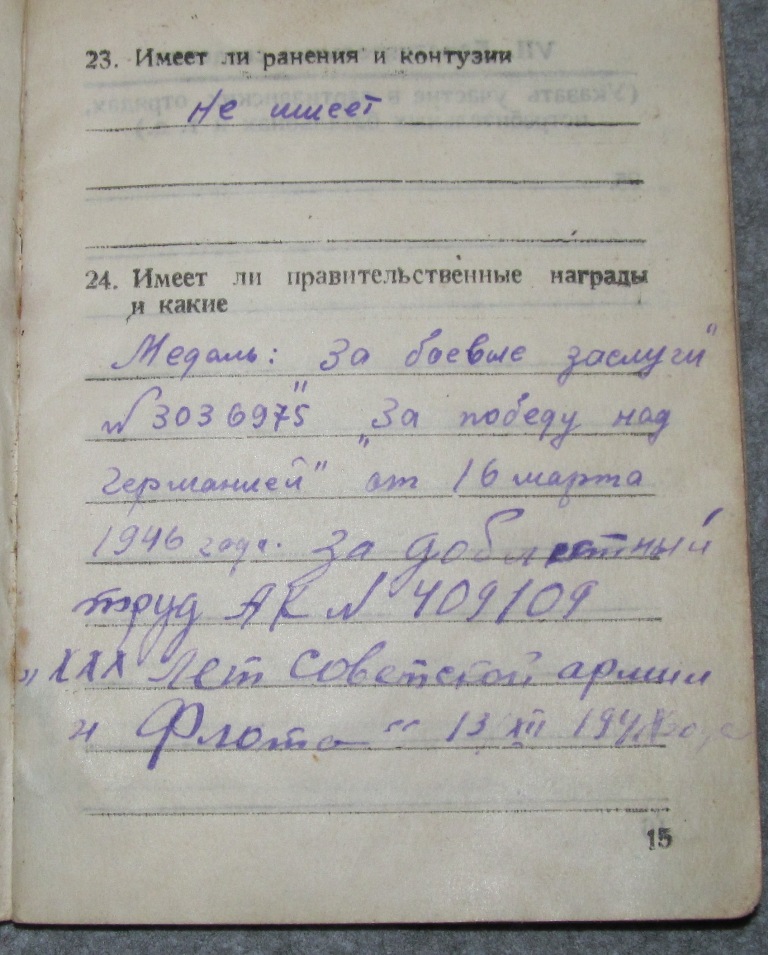 23. Имеет ли ранения и контузии
Не имеет
24. Имеет ли правительственные награды
и какие
Медаль: За боевые заслуги"
№ 3036975 "За победу над
германией" от 16 марта
1946 года. За доблестный
труд АК № 409109
„ХХХ лет советской армии
и Флота" 13 XII 194
15